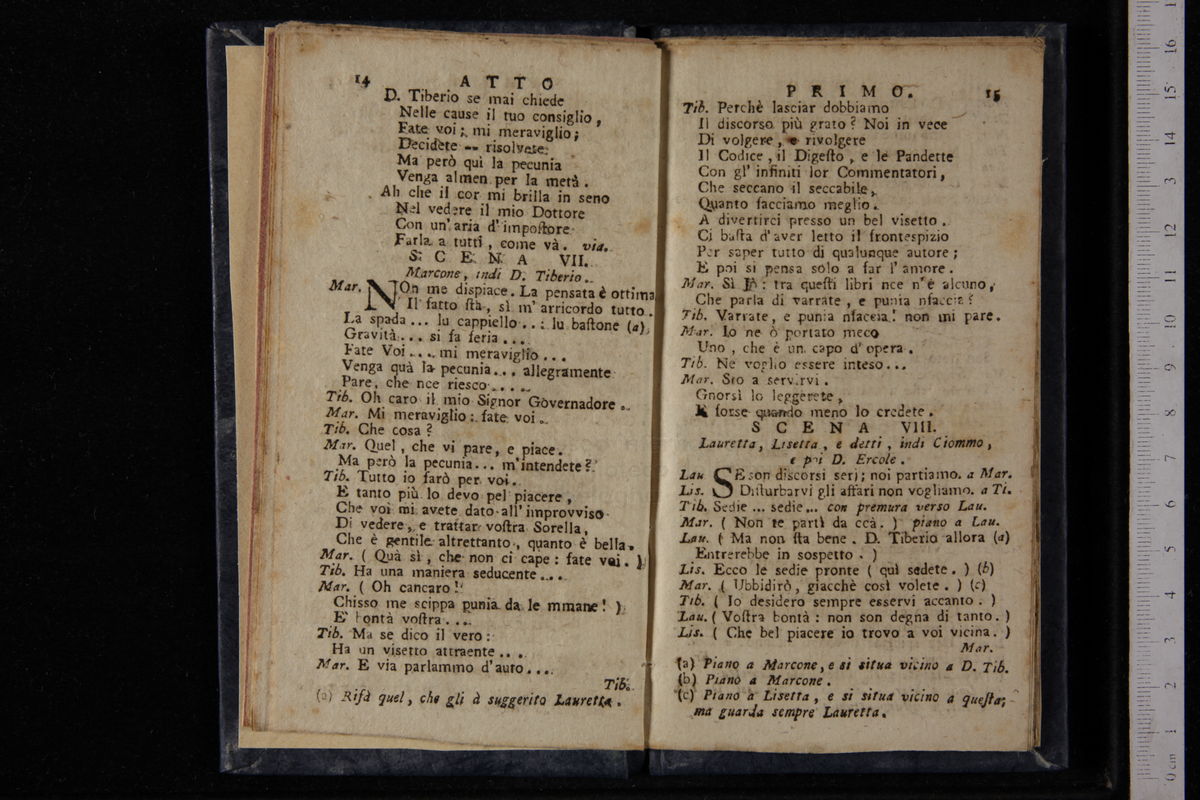 14 ATTO
D. Tiberio se mai chiede
Nelle cause il tuo consiglio,
Fate voi; mi meraviglio;
Decidete -- risolvete.
Ma però quì la pecunia
Venga almen per la metà.
Ah che il cor mi brilla in seno
Nel vedere il mio Dottore
Con un' aria d' impoſtore
Farla a tutti, come và. via.
SCENA VII.
Marcone, indi D. Tiberio.
Mar. NOn me dispiace. La pensata è ottima
Il fatto ſta, sì m' arricordo tutto.
La spada ... lu cappiello ... lu baſtone (a)
Gravità... si fa feria ...
Fate Voi.... mi meraviglio ...
Venga quà la pecunia... allegramente
Pare, che nce riesco ....
Tib. Oh caro il mio Signor Governadore.
Mar. Mi meraviglio: fate voi.
Tib. Che cosa?
Mar. Quel, che vi pare, e piace.
Ma però la pecunia... m'intendete?
Tib. Tutto io farò per voi.
E tanto più lo devo pel piacere,
Che voi mi avete dato all' improvviso
Di vedere, e trattar voſtra Sorella,
Che è gentile altrettanto, quanto è bella.
Mar. ( Quà sì, che non ci cape: fate voi. )
Tib. Ha una maniera seducente....
Mar. ( Oh cancaro!
Chisso me scippa punia da le mmane! )
E' bontà voſtra....
Tib. Ma se dico il vero:
Ha un visetto attraente....
Mar. E via parlammo d'auto....
Tib.
(a) Rifà quel, che gli à suggerito Lauretta.
PRIMO. 15
Tib. Perchè lasciar dobbiamo
Il discorso più grato? Noi in vece
Di volgere, e rivolgere
Il Codice, il Digeſto, e le Pandette
Con gl' infiniti lor Commentatori,
Che seccano il seccabile,
Quanto facciamo meglio.
A divertirci presso un bel visetto.
Ci baſta d'aver letto il frontespizio
Per saper tutto di qualunque autore;
E poi si pensa solo a far l' amore.
Mar. Sì : tra queſti libri nce n'è alcuno,
Che parla di varrate, e punia nfaccia?
Tib. Varrate, e punia nfaccia! non mi pare.
Mar. Io ne ò portato meco
Uno, che è un capo d' opera.
Tib. Ne voglio essere inteso...
Mar. Sto a servirvi.
Gnorsì lo leggerete,
E forse quando meno lo credete.
SCENA VIII.
Lauretta, Lisetta, e detti, indi Ciommo,
e poi D. Ercole.
Lau SE son discorsi serj; noi partiamo. a Mar.
Lis. Diſturbarvi gli affari non vogliamo. a Ti.
Tib. Sedie ... sedie... con premura verso Lau.
Mar. ( Non te partì da ccà. ) piano a Lau.
Lau. ( Ma non ſta bene. D. Tiberio allora (a)
Entrerebbe in sospetto. )
Lis. Ecco le sedie pronte ( quì sedete. ) (b)
Mar. ( Ubbidirò, giacchè così volete. ) (c)
Tib. ( Io desidero sempre esservi accanto. )
Lau. ( Voſtra bontà: non son degna di tanto. )
Lis. ( Che bel piacere io trovo a voi vicina. )
Mar.
(a) Piano a Marcone, e si situa vicino a D. Tib.
(b) Piano a Marcone.
(c) Piano a Lisetta, e si situa vicino a queſta;
ma guarda sempre Lauretta.
16
15
14
13
12
11
10
9
8
7
6
5
4
3
2
1
0 cm